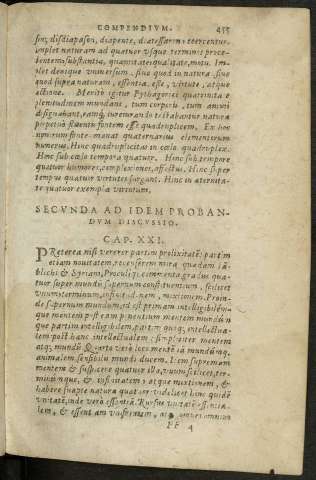 COMPENDIVM. 455
sin, disdiapason, diapente, diatessaron exercentur.
implet naturam ad quatuor vsque terminos proce-
dentem, substantia, quantitate, qualitate, motu. Im-
plet denique vniuersum, siue quod in natura, siue
quod supra naturam, essentia, esse, virtute, atque
actione. Merito igitur Pythagorici quaternitatem
plenitudinem mundani, tum corporis, tum animi
designabant, eamque iurenando testabantur naturæ
perpetuò fluentis fontem esse quadruplicem. Ex hoc
fonte manat quaternarius elementorum
numerus. Hinc quadruplicitas in cœlo quadruplex.
Hinc sub cœlo tempora quatuor. Hinc sub tempore
quatuor humores, complexiones, affectus. Hinc super
tempus quatuor virtutes surgunt. Hinc in æternita-
te quatuor exempla virtutum.
SECVNDA AD IDEM PROBAN-
DVM DISCVSSIO.
CAP. XXI.
PRæterea nisi vererer partim prolixitatem partim
etiam nouitatem, recenserem mira quædam Iam-
blichi & Syriani, Proculique commenta gradus qua-
tuor super mundũ supernum constituentium, scilicet
vnum, terminum, infinitudinem, mixtionem. Proin-
de supernum mundum, id est primum intelligibilem-
que mentem post eam secundam mentem mundumq́
que partim intelligibilem, partim quoque intellectua-
lem post hanc intellectualem simpliciter mentem
atque mundũ. Quarto verò loco mentẽ in mundũq́;
animalem sensibilis mundi ducem. Item supremam
mentem & suspicere quatuor illa, vnum scilicet, ter-
minũque, & infinitatem, atque mixtionem, &
habere suapte natura quatuor videlicet hinc quidẽ
vnitatẽ, inde verò essentiã. Rursus vnitatẽ essentia-
lem, & essentiam vniformem, atque vniuersum
FF 4